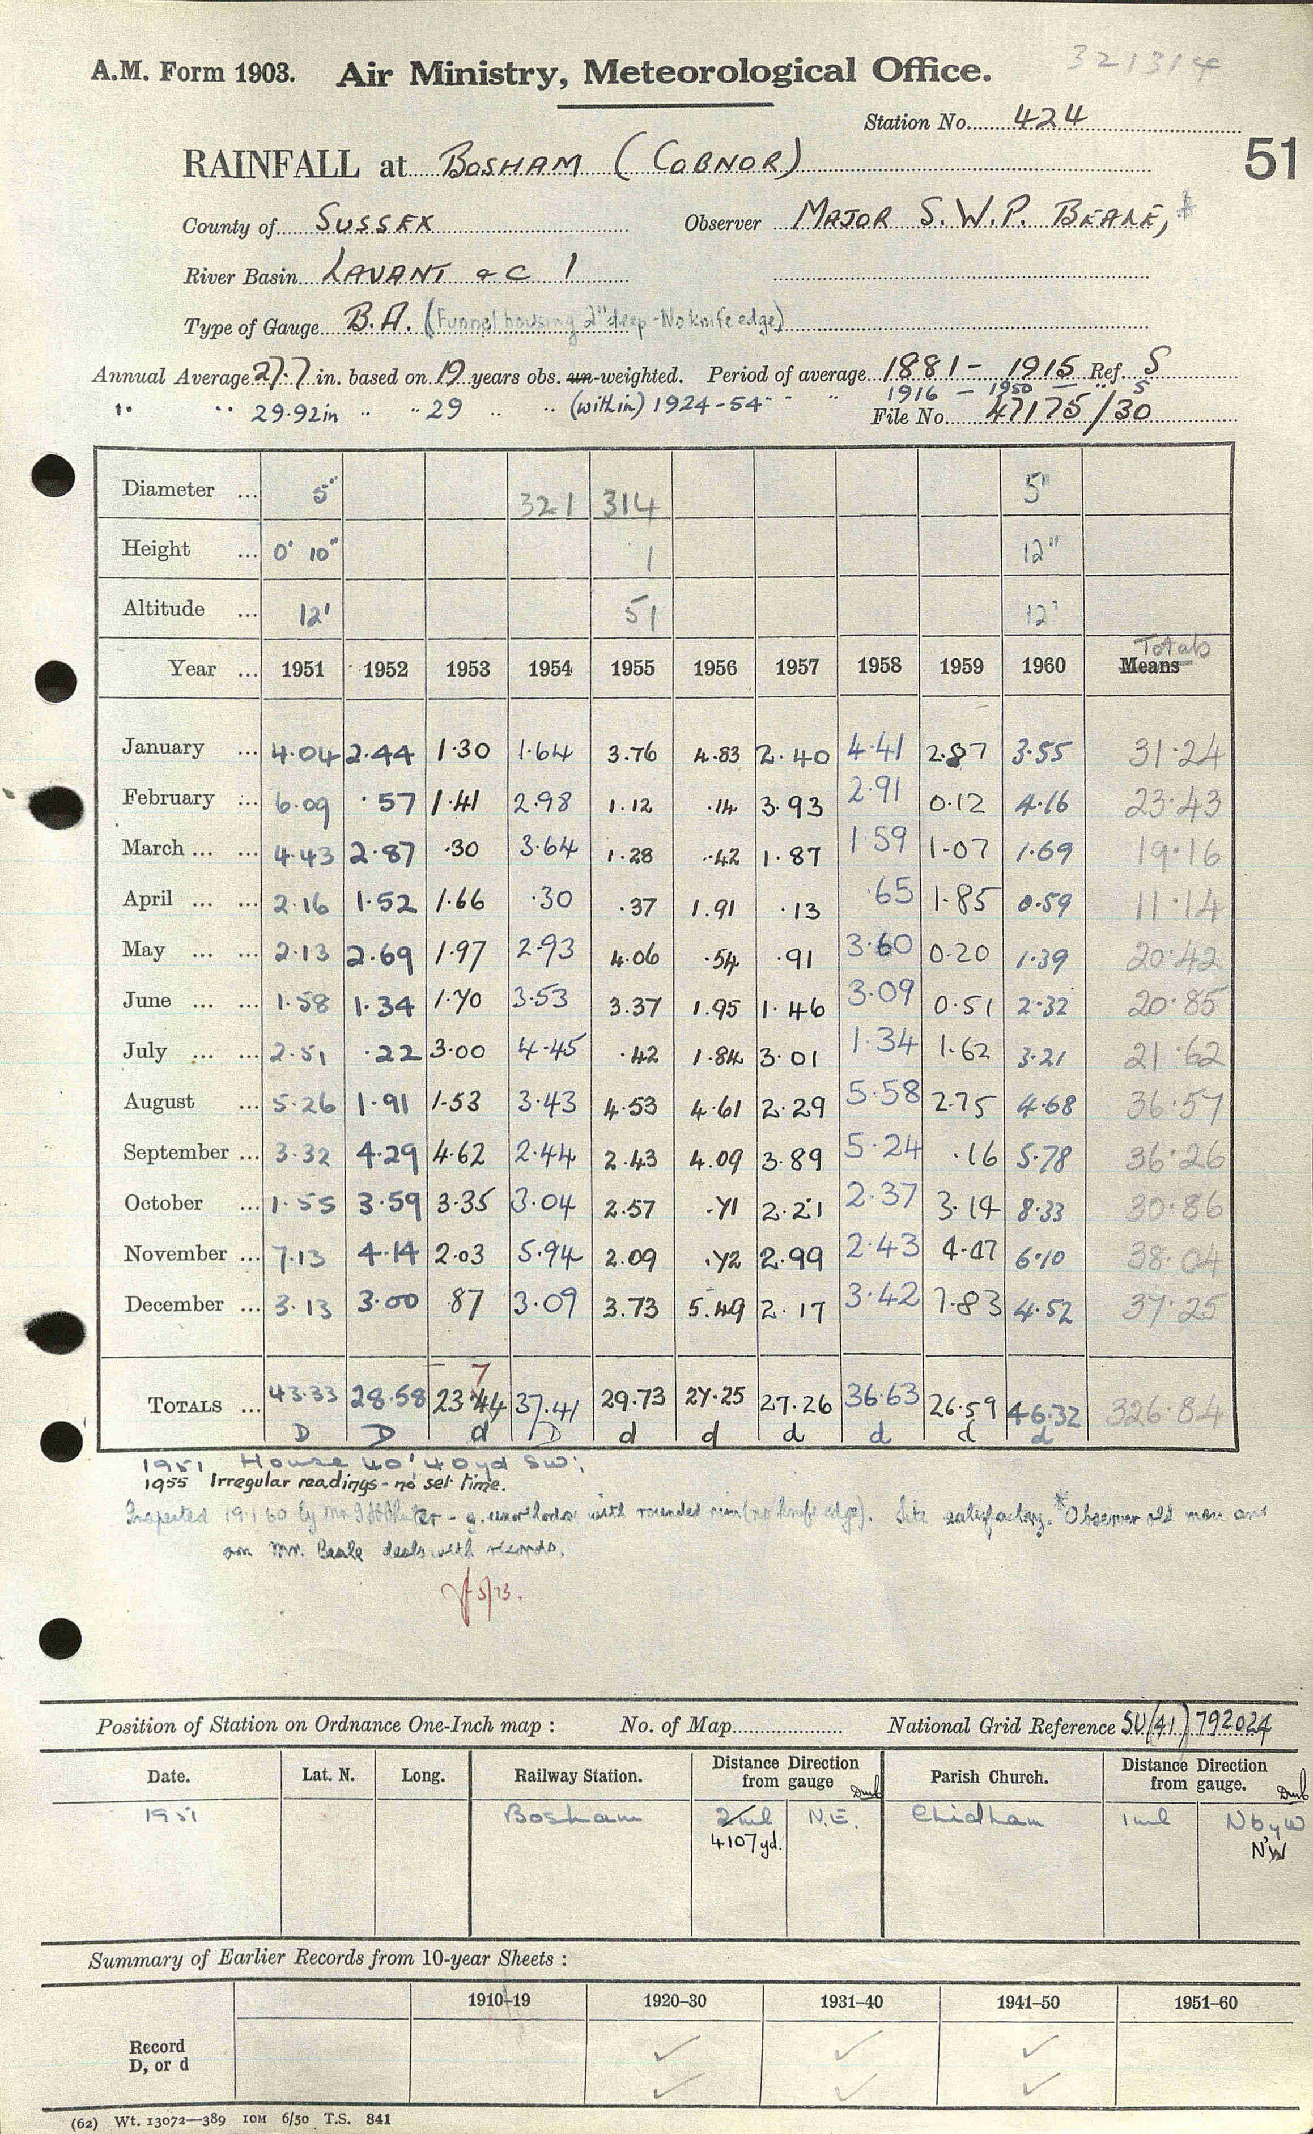 321314
A.M. Form 1903. Air Ministry, Meteorological Office.
Station No. 424
51
RAINFALL at BOSHAM (COBNOR)
County of SUSSEX Observer MAJOR S.W.P. BEALE, *
River Basin LAVANT &C 1
Type of Gauge B.A. (Funnel housing 2" deep - No knife edge)
Annual Average 27.7 in. based on 19 years obs. un-weighted. Period of average 1881 - 1915 Ref. S
" " 29.92in " " 29 " " (within) 1924-54 " " " 1916 - 1950 " S
File No. 47175/30
Diameter ... 5" 321 314 5"
Height ... 0' 10" 1 12"
Altitude ... 12' 51 12'
Totals
Year ... 1951 1952 1953 1954 1955 1956 1957 1958 1959 1960 Means
January ... 4.04 2.44 1.30 1.64 3.76 4.83 2.40 4.41 2.87 3.55 31.24
February ... 6.09 .57 1.41 2.98 1.12 .14 3.93 2.91 0.12 4.16 23.43
March ... ... 4.43 2.87 .30 3.64 1.28 .42 1.87 1.59 1.07 1.69 19.16
April ... ... 2.16 1.52 1.66 .30 .37 1.91 .13 .65 1.85 0.59 11.14
May ... ... 2.13 2.69 1.97 2.93 4.06 .54 .91 3.60 0.20 1.39 20.42
June ... ... 1.58 1.34 1.70 3.53 3.37 1.95 1.46 3.09 0.51 2.32 20.85
July ... ... 2.51 .22 3.00 4.45 .42 1.84 3.01 1.34 1.62 3.21 21.62
August ... 5.26 1.91 1.53 3.43 4.53 4.61 2.29 5.58 2.75 4.68 36.57
September ... 3.32 4.29 4.62 2.44 2.43 4.09 3.89 5.24 .16 5.78 36.26
October ... 1.55 3.59 3.35 3.04 2.57 .71 2.21 2.37 3.14 8.33 30.86
November ... 7.13 4.14 2.03 5.94 2.09 .72 2.99 2.43 4.47 6.10 38.04
December ... 3.13 3.00 .87 3.09 3.73 5.49 2.17 3.42 7.83 4.52 37.25
7
TOTALS ... 43.33 28.58 23.44 37.41 29.73 27.25 27.26 36.63 26.59 46.32 326.84
D D d D d d d d d d
1951 House 40' 40yd SW;
1955 Irregular readings - no set time.
Inspected 19.1.60 by Mr - with rounded rim (no knife edge). Site satisfactory. *Observer old man and
son Mr. Beale deals with records.
5/73.
Position of Station on Ordnance One-Inch map : No. of Map National Grid Reference SU(41) 792024
Date. Lat. N. Long. Railway Station. Distance Direction from gauge Dmb Parish Church. Distance Direction from gauge. Dmb
1951 Bosham 2ml N.E. Chidham 1ml N by W
4107yd. N'W
Summary of Earlier Records from 10-year Sheets :
1910-19 1920-30 1931-40 1941-50 1951-60
Record
D, or d
(62) Wt. 13072—389 10M 6/50 T.S. 841